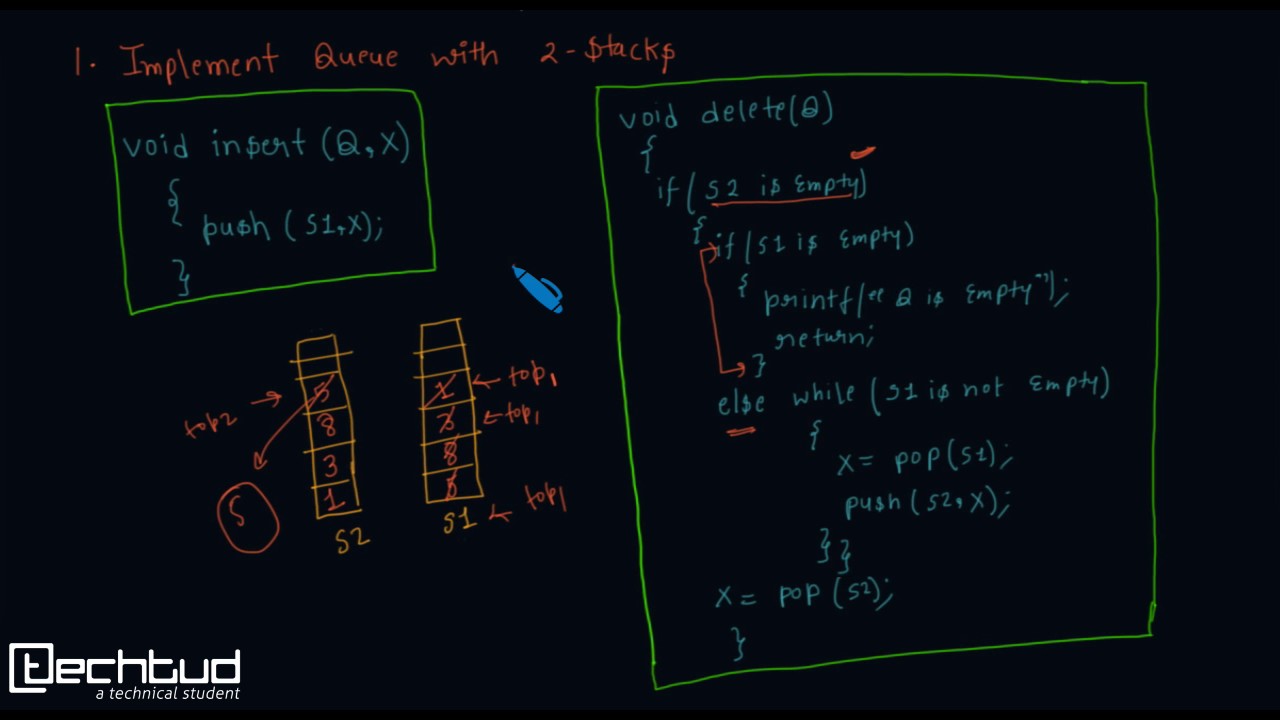 1. Implement Queue with 2-Stacks
void insert (Q, X)
{
push (S1, X);
}
void delete(Q)
{
if( S2 is Empty)
{
if(S1 is Empty)
{ printf(" Q is Empty");
return;
}
else while (S1 is not Empty)
{
X = pop(S1);
push (S2, X);
} }
X = pop (S2);
}
top2
5
8
3
1
S2
5
1
3
8
5
S1
top1
top1
top1
techtud
a technical student